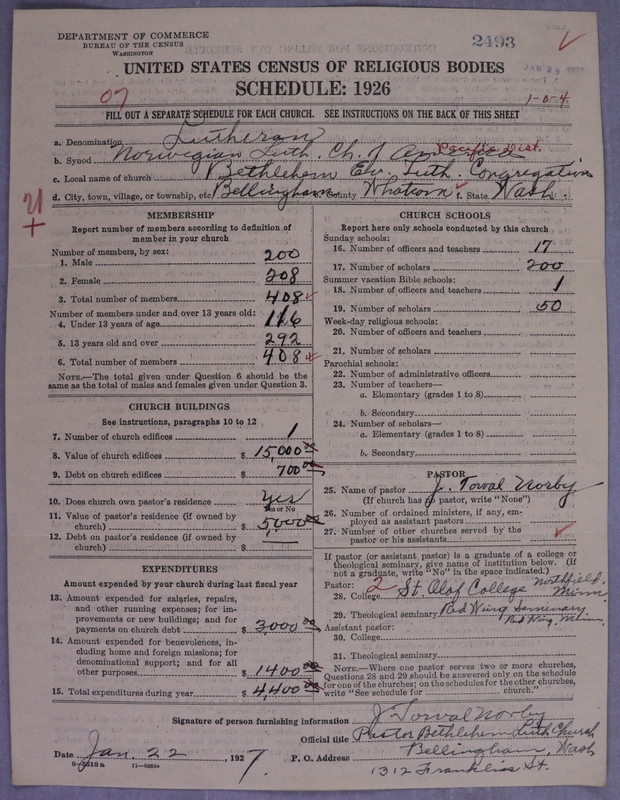 DEPARTMENT OF COMMERCE
BUREAU OF THE CENSUS
WASHINGTON
2493
JAN 25 1927
UNITED STATES CENSUS OF RELIGIOUS BODIES
SCHEDULE: 1926
07
1-0-4
FILL OUT A SEPARATE SCHEDULE FOR EACH CHURCH. SEE INSTRUCTIONS ON THE BACK OF THIS SHEET
a. Denomination Lutheran
b. Synod Norwegian Luth. Ch. of America Pacific Dist.
c. Local name of church Bethlehem Ev. Luth. Congregation
d. City, town, village, or township, etc. Bellingham e. County Whatcom f. State Wash
MEMBERSHIP
Report number of members according to definition of
member in your church
Number of members, by sex:
1. Male 200
2. Female 208
3. Total number of members 408
Number of members under and over 13 years old:
4. Under 13 years of age 116
5. 13 years old and over 292
6. Total number of members 408
NOTE.—The total given under Question 6 should be the
same as the total of males and females given under Question 3.
CHURCH BUILDINGS
See instructions, paragraphs 10 to 12
7. Number of church edifices 1
8. Value of church edifices $ 15,000 00
9. Debt on church edifices $ 700 00
10. Does church own pastor's residence Yes
Yes or No
11. Value of pastor's residence (if owned by
church) $ 5,000 00
12. Debt on pastor's residence (if owned by
church) $
EXPENDITURES
Amount expended by your church during last fiscal year
13. Amount expended for salaries, repairs,
and other running expenses; for im-
provements or new buildings; and for
payments on church debt $ 3000 00
14. Amount expended for benevolences, in-
cluding home and foreign missions; for
denominational support; and for all
other purposes $ 1400 00
15. Total expenditures during year $ 4,400 00
CHURCH SCHOOLS
Report here only schools conducted by this church
Sunday schools:
16. Number of officers and teachers 17
17. Number of scholars 200
Summer vacation Bible schools:
18. Number of officers and teachers 1
19. Number of scholars 50
Week-day religious schools:
20. Number of officers and teachers
21. Number of scholars
Parochial schools:
22. Number of administrative officers
23. Number of teachers—
a. Elementary (grades 1 to 8)
b. Secondary
24. Number of scholars—
a. Elementary (grades 1 to 8)
b. Secondary
PASTOR
25. Name of pastor J. Torval Norby
(If church has no pastor, write "None")
26. Number of ordained ministers, if any, em-
ployed as assistant pastors
27. Number of other churches served by the
pastor or his assistants
If pastor (or assistant pastor) is a graduate of a college or
theological seminary, give name of institution below. (If
not a graduate, write "No" in the space indicated.)
Pastor: 2
28. College St. Olaf College Northfield, Minn
29. Theological seminary Red Wing Seminary
Red Wing, Minn.
Assistant pastor:
30. College
31. Theological seminary
NOTE.—Where one pastor serves two or more churches,
Questions 28 and 29 should be answered only on the schedule
for one of the churches; on the schedules for the other churches,
write "See schedule for church."
Signature of person furnishing information J. Torval Norby
Official title Pastor Bethlehem Luth Church
Date Jan. 22, 1927. P. O. Address Bellingham, Wash
8-5518a 11-9264a
1312 Franklin St.